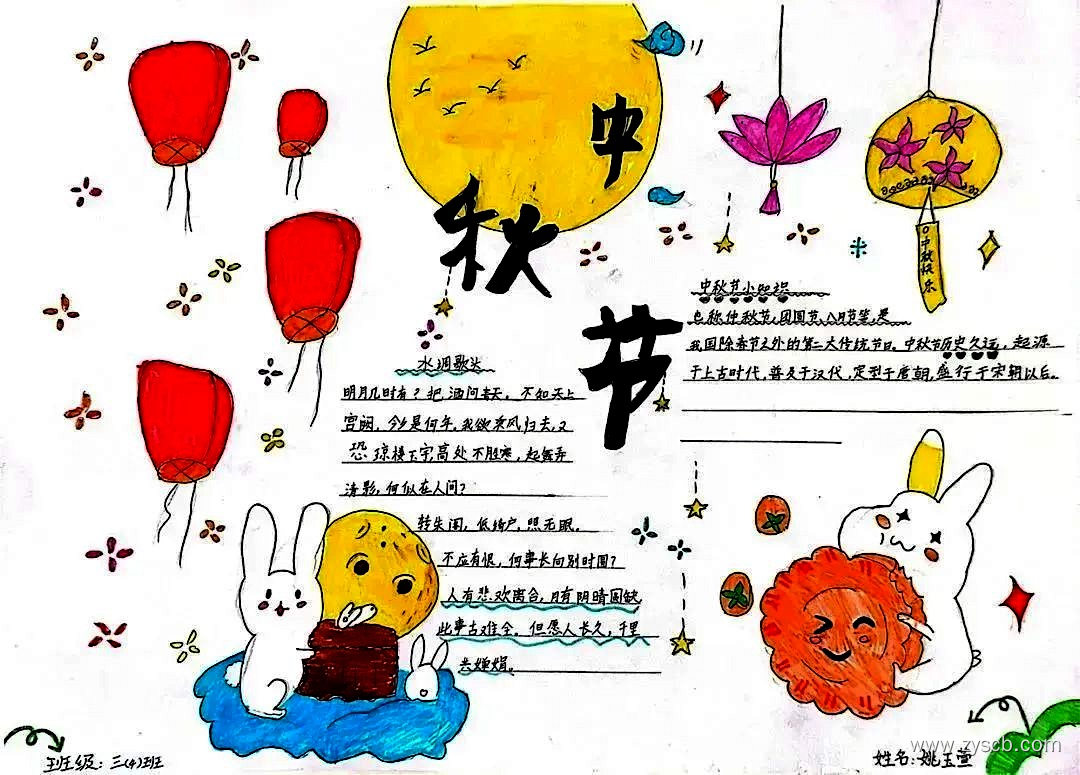 中
秋
节
中秋快乐
中秋节小知识
也称仲秋节,团圆节,八月节等,是
我国除春节之外的第二大传统节日。中秋节历史久远,起源
于上古时代,普及于汉代,定型于唐朝,盛行于宋朝以后。
水调歌头
明月几时有?把酒问青天,不知天上
宫阙,今夕是何年。我欲乘风归去,又
恐琼楼玉宇高处不胜寒,起舞弄
清影,何似在人间?
转朱阁,低绮户,照无眠。
不应有恨,何事长向别时圆?
人有悲欢离合,月有阴晴圆缺
此事古难全。但愿人长久,千里
共婵娟。
班级:三(4)班
姓名:姚玉萱
www.zyscb.com